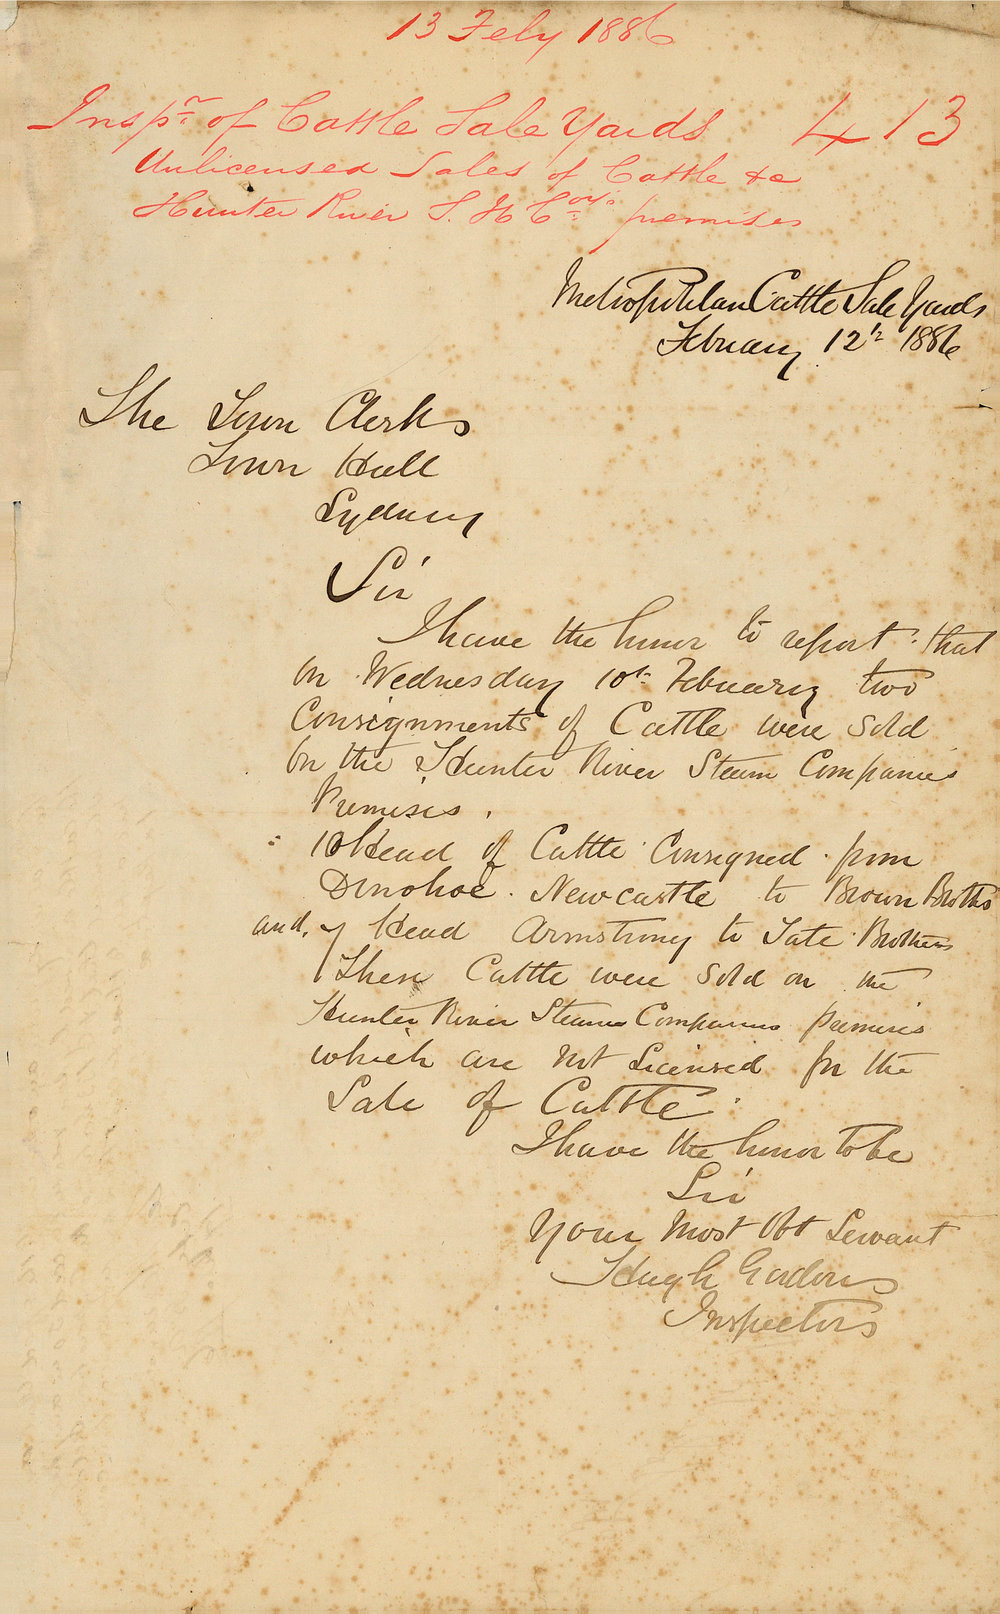 13 Feby 1886
Inspr of Cattle Sale Yards 413
Unlicensed Sales of Cattle &c
Hunter River S. N Coy's premises
Metropolitan Cattle Sale Yards
February 12th 1886
The Town Clerk
Town Hall
Sydney
Sir
I have the honor to report that
on Wednesday 10th February two
Consignments of Cattle were sold
on the Hunter River Steam Companies
Premises.
10 Head of Cattle Consigned from
Donohoe. Newcastle to Brown Broths
and, 7 Head Armstrong to Tate Brothers
These Cattle were sold on the
Hunter River Steam Companies premises
which are not Licensed for the
Sale of Cattle.
I have the honor to be
Sir
Your Most Obt Servant
Hugh Gordon
Inspector